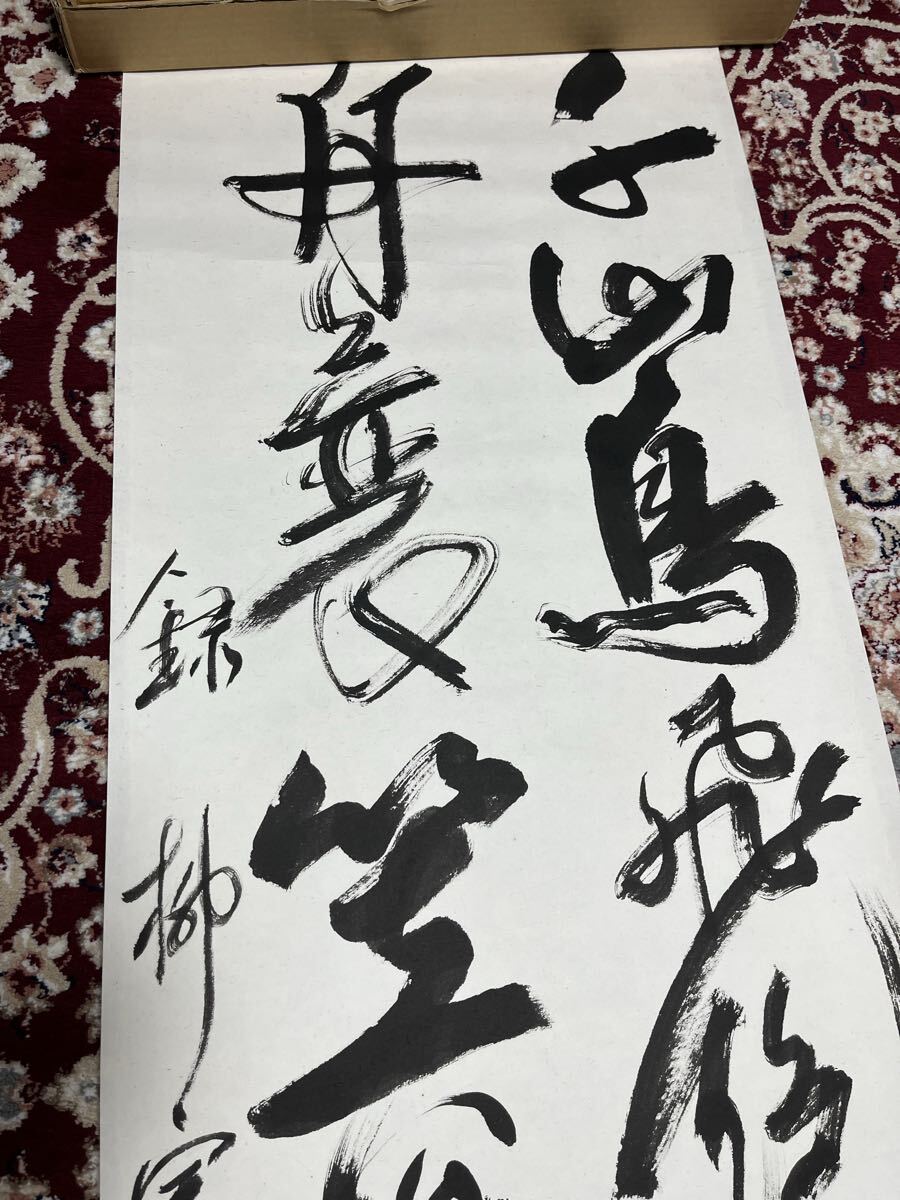 千山鳥飛絶
舟蓑笠翁
錄柳宗